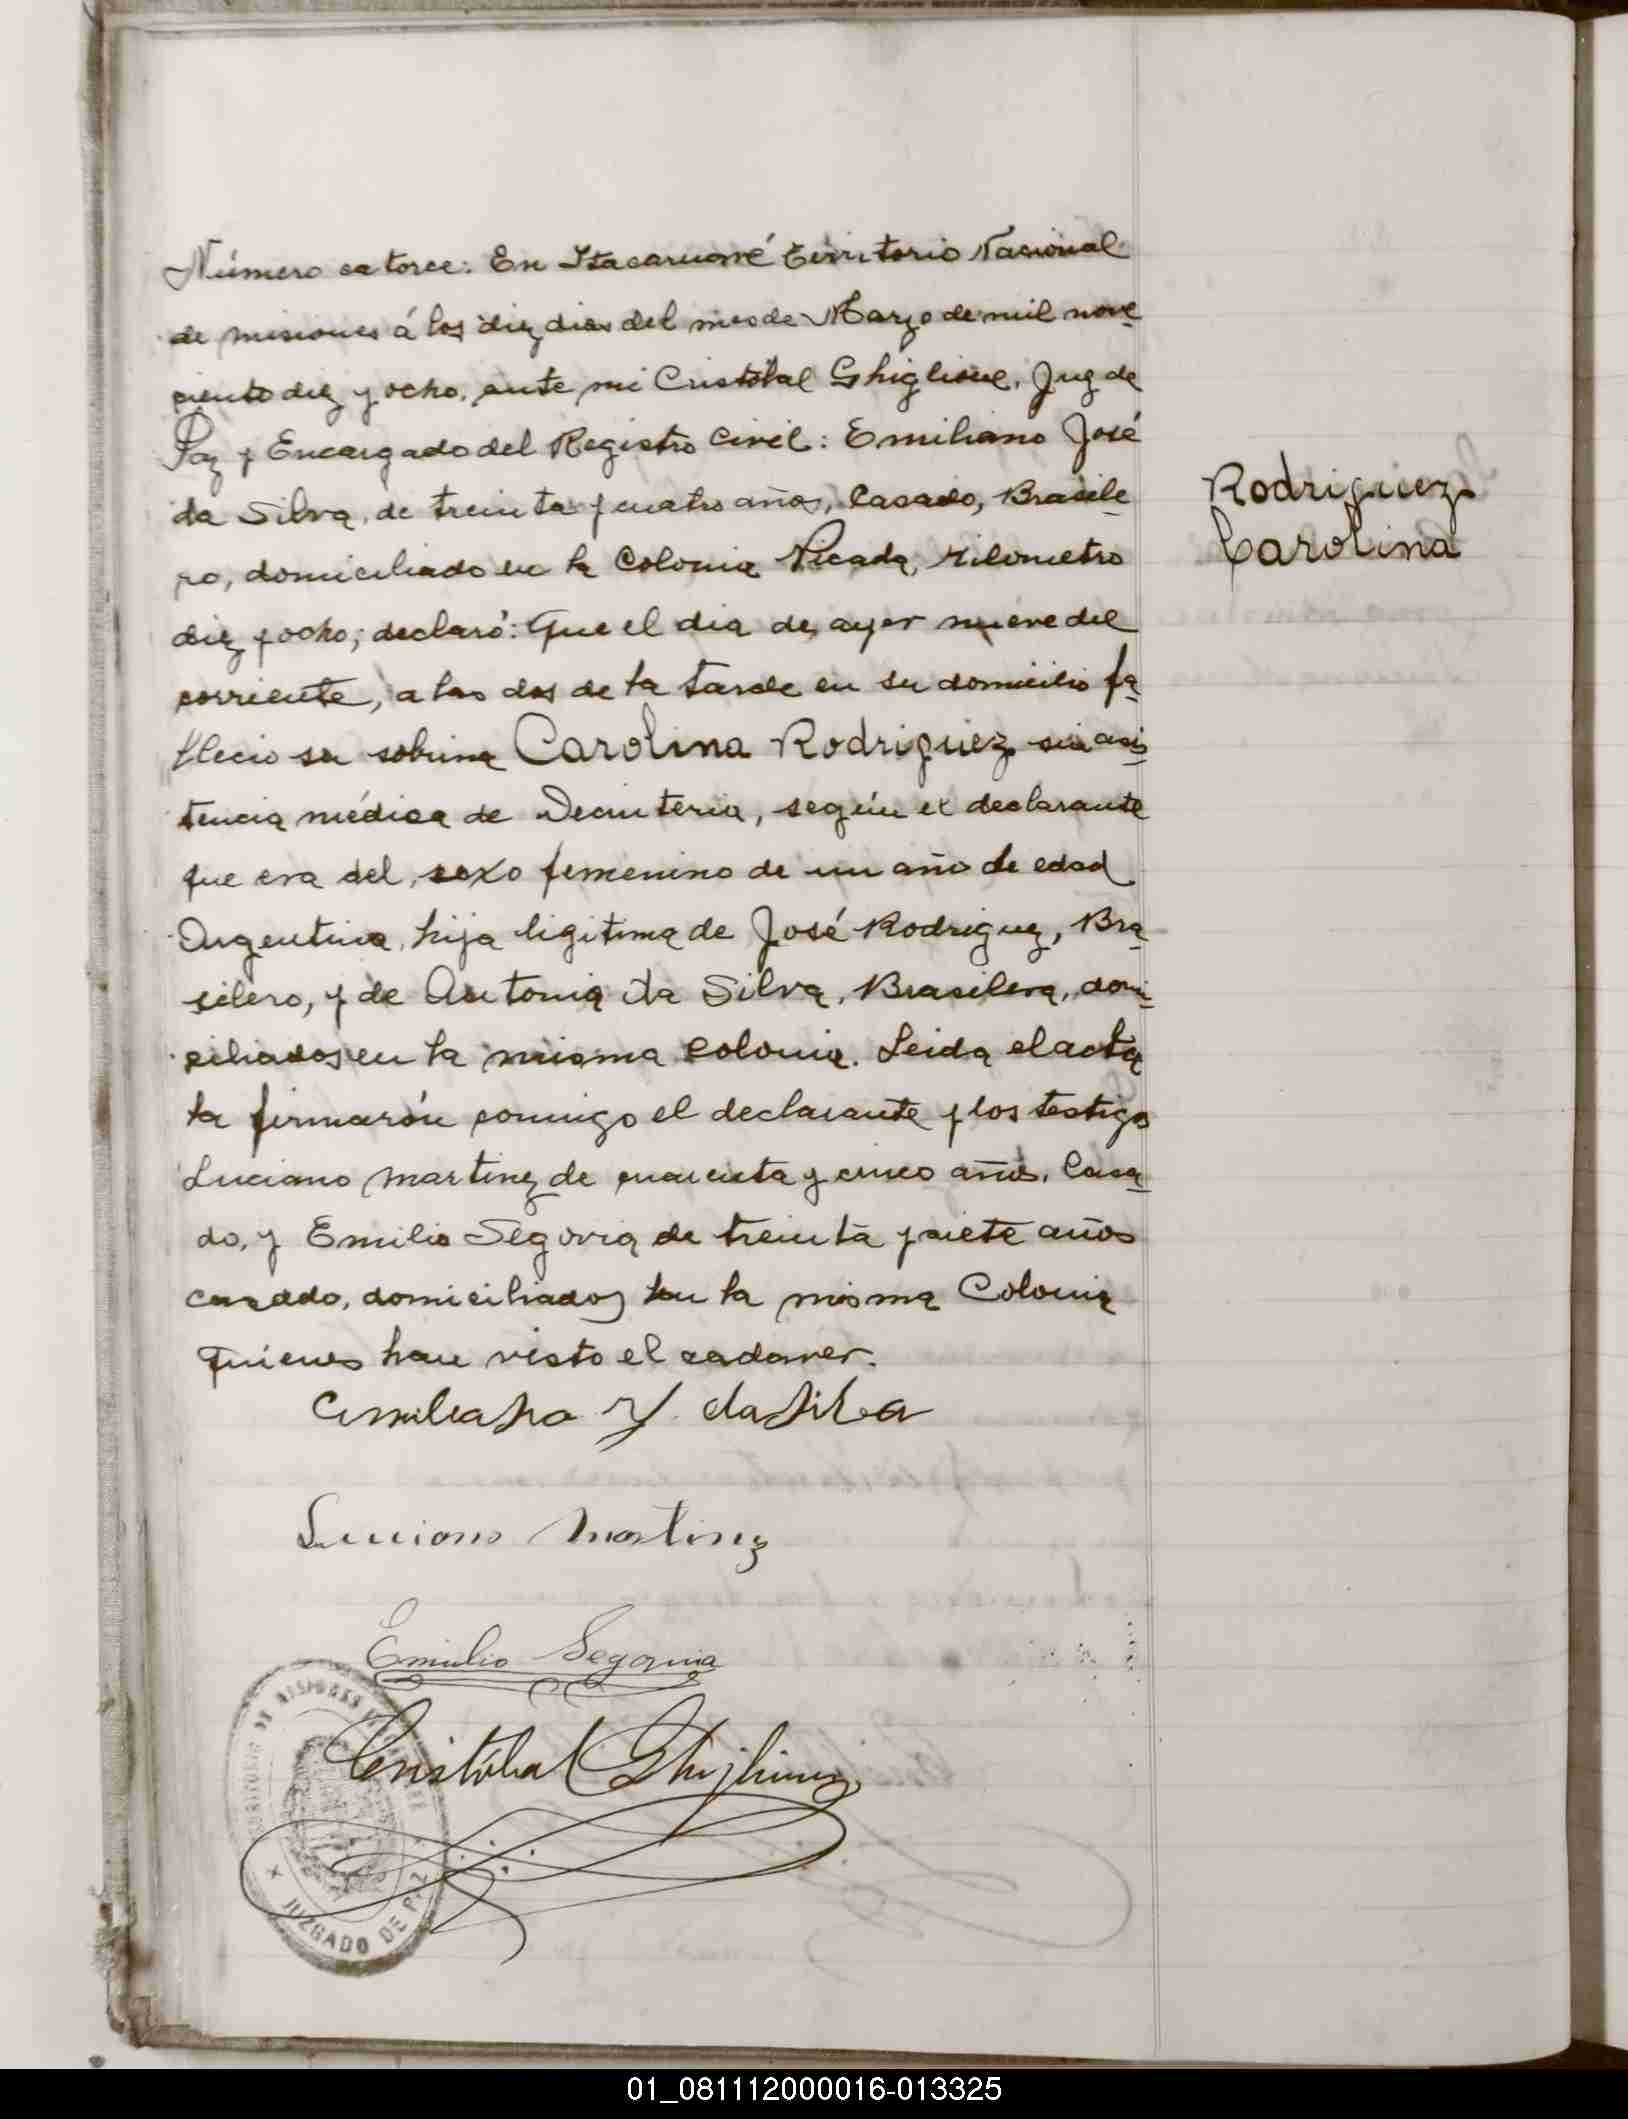 Número catorce: En Itacaruaré territorio Nacional
de misiones á los diez dias del mes de Marzo de mil nove
ciento diez y ocho, ante mi Cristóbal Ghiglione, Juez de
Paz y Encargado del Registro Civil: Emiliano José
da Silva, de treinta y cuatro años, Casado, Brasile
ro, domiciliado en la Colonia Picada, Kilometro
diez y ocho; declaró: Que el dia de ayer nueve del
corriente, a las dos de la tarde en su domicilio fa
llecio su sobrina Carolina Rodriguez sin asis
tencia médica de Decinteria, según el declarante
que era del sexo femenino de un año de edad
Argentina, hija ligitima de José Rodriguez, Bra
silero, y de Antonia da Silva, Brasilera, domi
ciliados en la misma Colonia. Leida el acta
la firmarón comigo el declarante y los testigos
Luciano Martinez de cuarenta y cinco años, Casa
do, y Emilio Segovia de treinta y siete años
casado, domiciliados en la misma Colonia
quienes han visto el cadaver.
Rodriguez
Carolina
Emiliano J. da Silva
Luciano Martinez
Emilio Segovia
Cristóbal Ghiglione
TERRITORIO DE MISIONES
JUZGADO DE PAZ
01_081112000016-013325